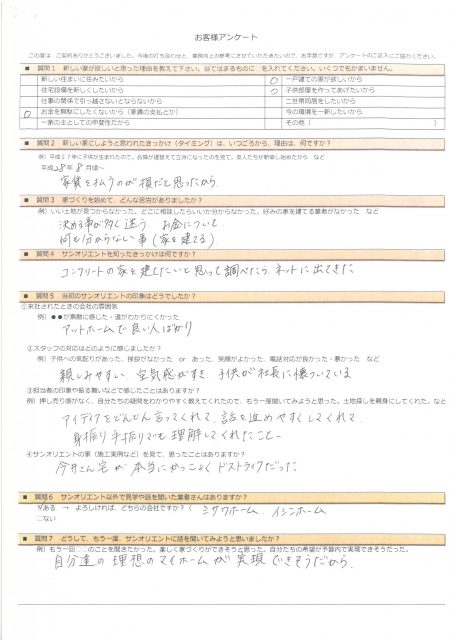 お客様アンケート
この度は、ご契約ありがとうございました。今後の打ち合わせと、業務向上の参考にさせていただきたいので、お手数ですが、アンケートのご記入にご協力ください。
■ 質問1 新しい家が欲しいと思った理由を教えて下さい。当てはまるものに を入れてください。いくつでもかまいません。
新しい住まいに住みたいから
○ 一戸建ての家が欲しいから
住宅設備を新しくしたいから
○ 子供部屋を作ってあげたいから
仕事の関係で引っ越さないとならないから
二世帯同居をしたいから
○ お金を無駄にしたくないから(家賃の支払とか)
今の環境を一新したいから
一家の主としての甲斐性だから
その他( )
■ 質問2 新しい家にしようと思われたきっかけ(タイミング)は、いつごろから、理由は、何ですか?
例)平成27年に子供が生まれたので。お隣が建替えて立派になったのを見て。友人たちが新築し始めたから など
平成28年8月頃~
家賃を払うのが損だと思ったから
■ 質問3 家づくりを始めて、どんな苦労がありましたか?
例)いい土地が見つからなかった。どこに相談したらいいか分からなかった。好みの家を建てる業者がなかった など
決める事が多く迷う。お金について
何も分からない事(家を建てる)
■ 質問4 サンオリエントを知ったきっかけは何ですか?
コンクリートの家を建てたいと思って調べたら ネットに出てきた。
■ 質問5 当初のサンオリエントの印象はどうでしたか?
①来社されたときの会社の雰囲気
例)●●が素敵に感じた・道がわかりにくかった
アットホームで良い人ばかり
②スタッフの対応はどのように感じましたか?
例)子供への気配りがあった、挨拶がなかった or あった、笑顔がよかった、電話対応が良かった・悪かった など
親しみやすい 空気感がすき 子供が社長に懐いている
③担当者の印象や振る舞いなどで感じたことはありますか?
例)押し売り感がなく、自分たちの疑問をわかりやすく教えてくれたので、もう一度聞いてみようと思った。土地探しを親身にしてくれた。など
アイディアをどんどん言ってくれて、話を進めやすくしてくれて
身振り手振りでも理解してくれたこと
④サンオリエントの家(施工実例など)を見て、思ったことはありますか?
今井さん宅が 本当にかっこよく ドストライクだった
■ 質問6 サンオリエント以外で見学や話を聞いた業者さんはありますか?
☑ある → よろしければ、どちらの会社ですか?( ミサワホーム、イシンホーム
□ない
■ 質問7 どうして、もう一度、サンオリエントに話を聞いてみようと思いましたか?
例)もう一回 のことを聞きたかった。楽しく家づくりができそうと思った。自分たちの希望が予算内で実現できそうだった。
自分達の理想のマイホームが実現できそうだから。